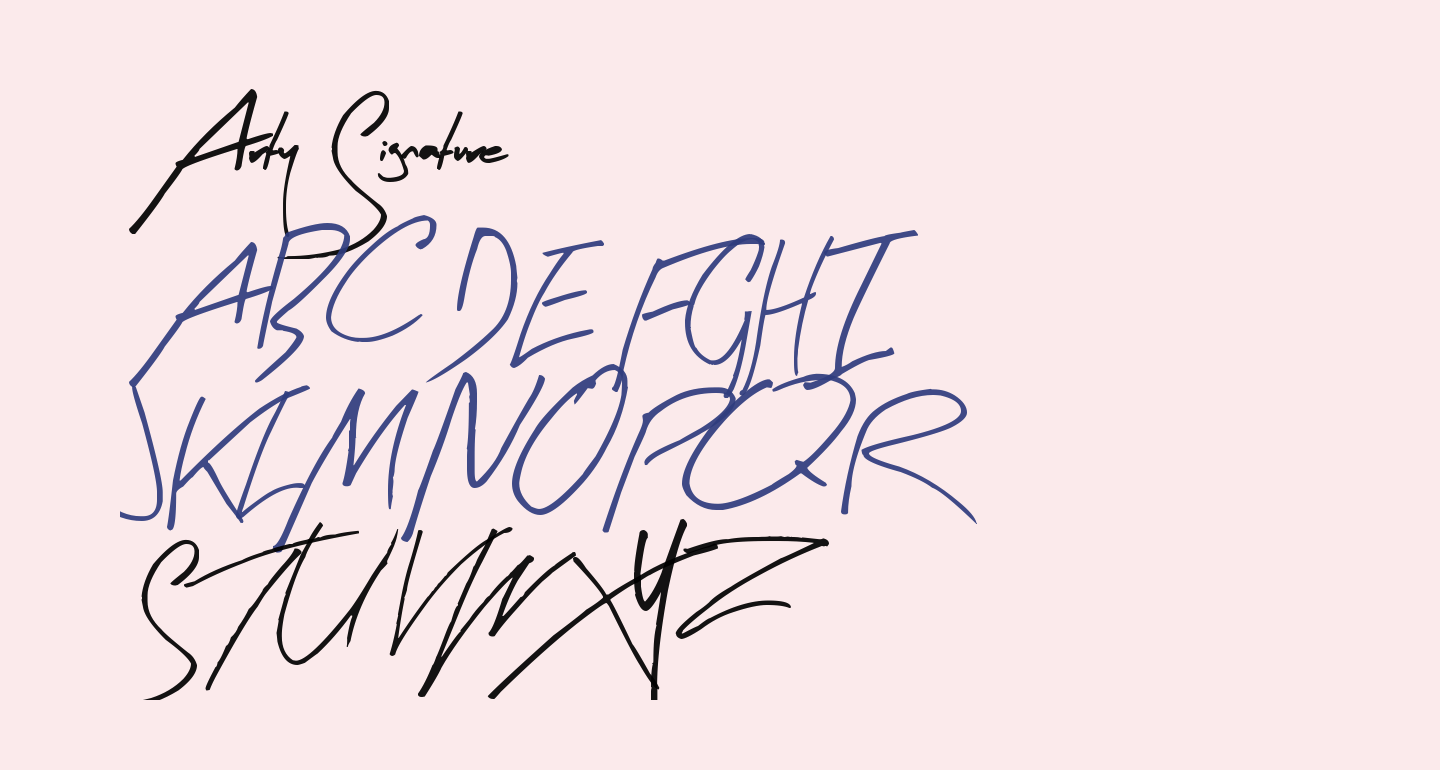 Arty Signature
ABCDEFGHI
JKLMNOPQR
STUVWXYZ